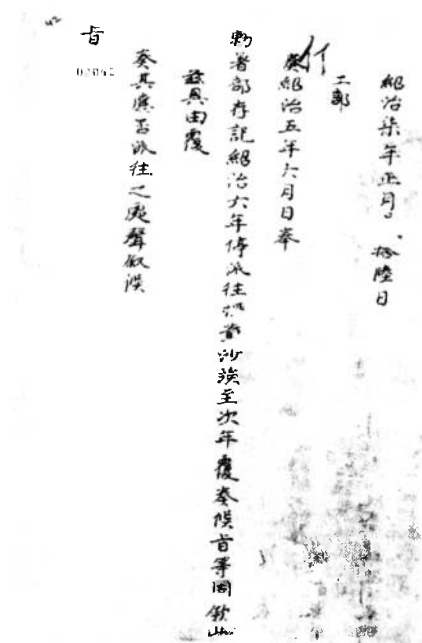 紹治柒年正月拾陸日
工部
奏紹治五年六月日奉
勅著部存記紹治六年停派往黃沙竢至次年覆奏候旨等因欽此
茲具由覆
奏其應否派往之處聲敘候
旨